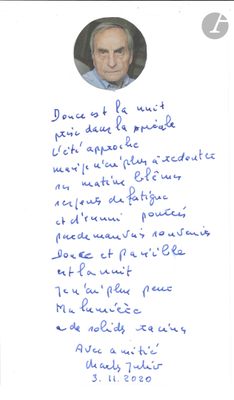 Douce est la nuit
prise dans la
L'été approche
mais je n'ai plus à redouter
ses matins blêmes
ses jours de fatigue
et d'ennui
par de mauvais souvenirs
douce et paisible
est la nuit
Je n'ai plus peur
Ma lumière
a de solides racines
Avec amitié
Charles Juliet
3.11.2020